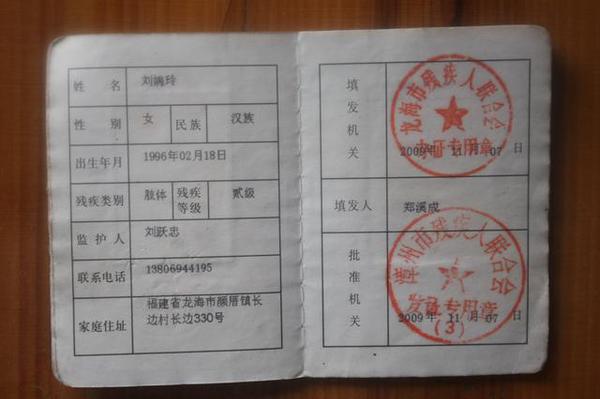 姓 名 刘婉玲
性 别 女 民族 汉族
出生年月 1996年02月18日
残疾类别 肢体 残疾等级 贰级
监护人 刘跃忠
联系电话 13806944195
家庭住址 福建省龙海市颜厝镇长
边村长边330号
填发机关
龙海市残疾人联合会
办证专用章
2009年 11月 07 日
填发人 郑溪成
批准机关
漳州市残疾人联合会
发证专用章
(3)
2009年 11月 07 日